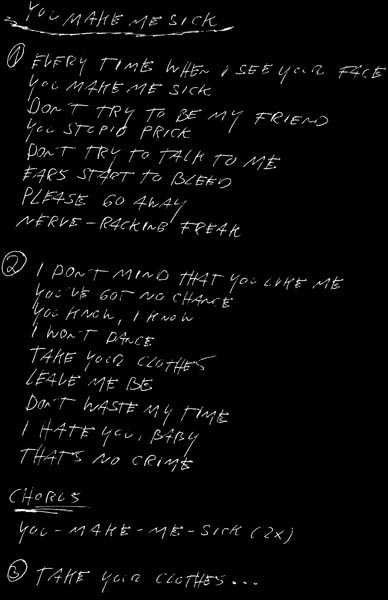 YOU MAKE ME SICK
① EVERY TIME WHEN I SEE YOUR FACE
YOU MAKE ME SICK
DON'T TRY TO BE MY FRIEND
YOU STUPID PRICK
DON'T TRY TO TALK TO ME
EARS START TO BLEED
PLEASE GO AWAY
NERVE-RACKING FREAK
② I DON'T MIND THAT YOU LIKE ME
YOU'VE GOT NO CHANCE
YOU KNOW, I KNOW
I WON'T DANCE
TAKE YOUR CLOTHES
LEAVE ME BE
DON'T WASTE MY TIME
I HATE YOU, BABY
THAT'S NO CRIME
CHORUS
YOU-MAKE-ME-SICK (2x)
③ TAKE YOUR CLOTHES...